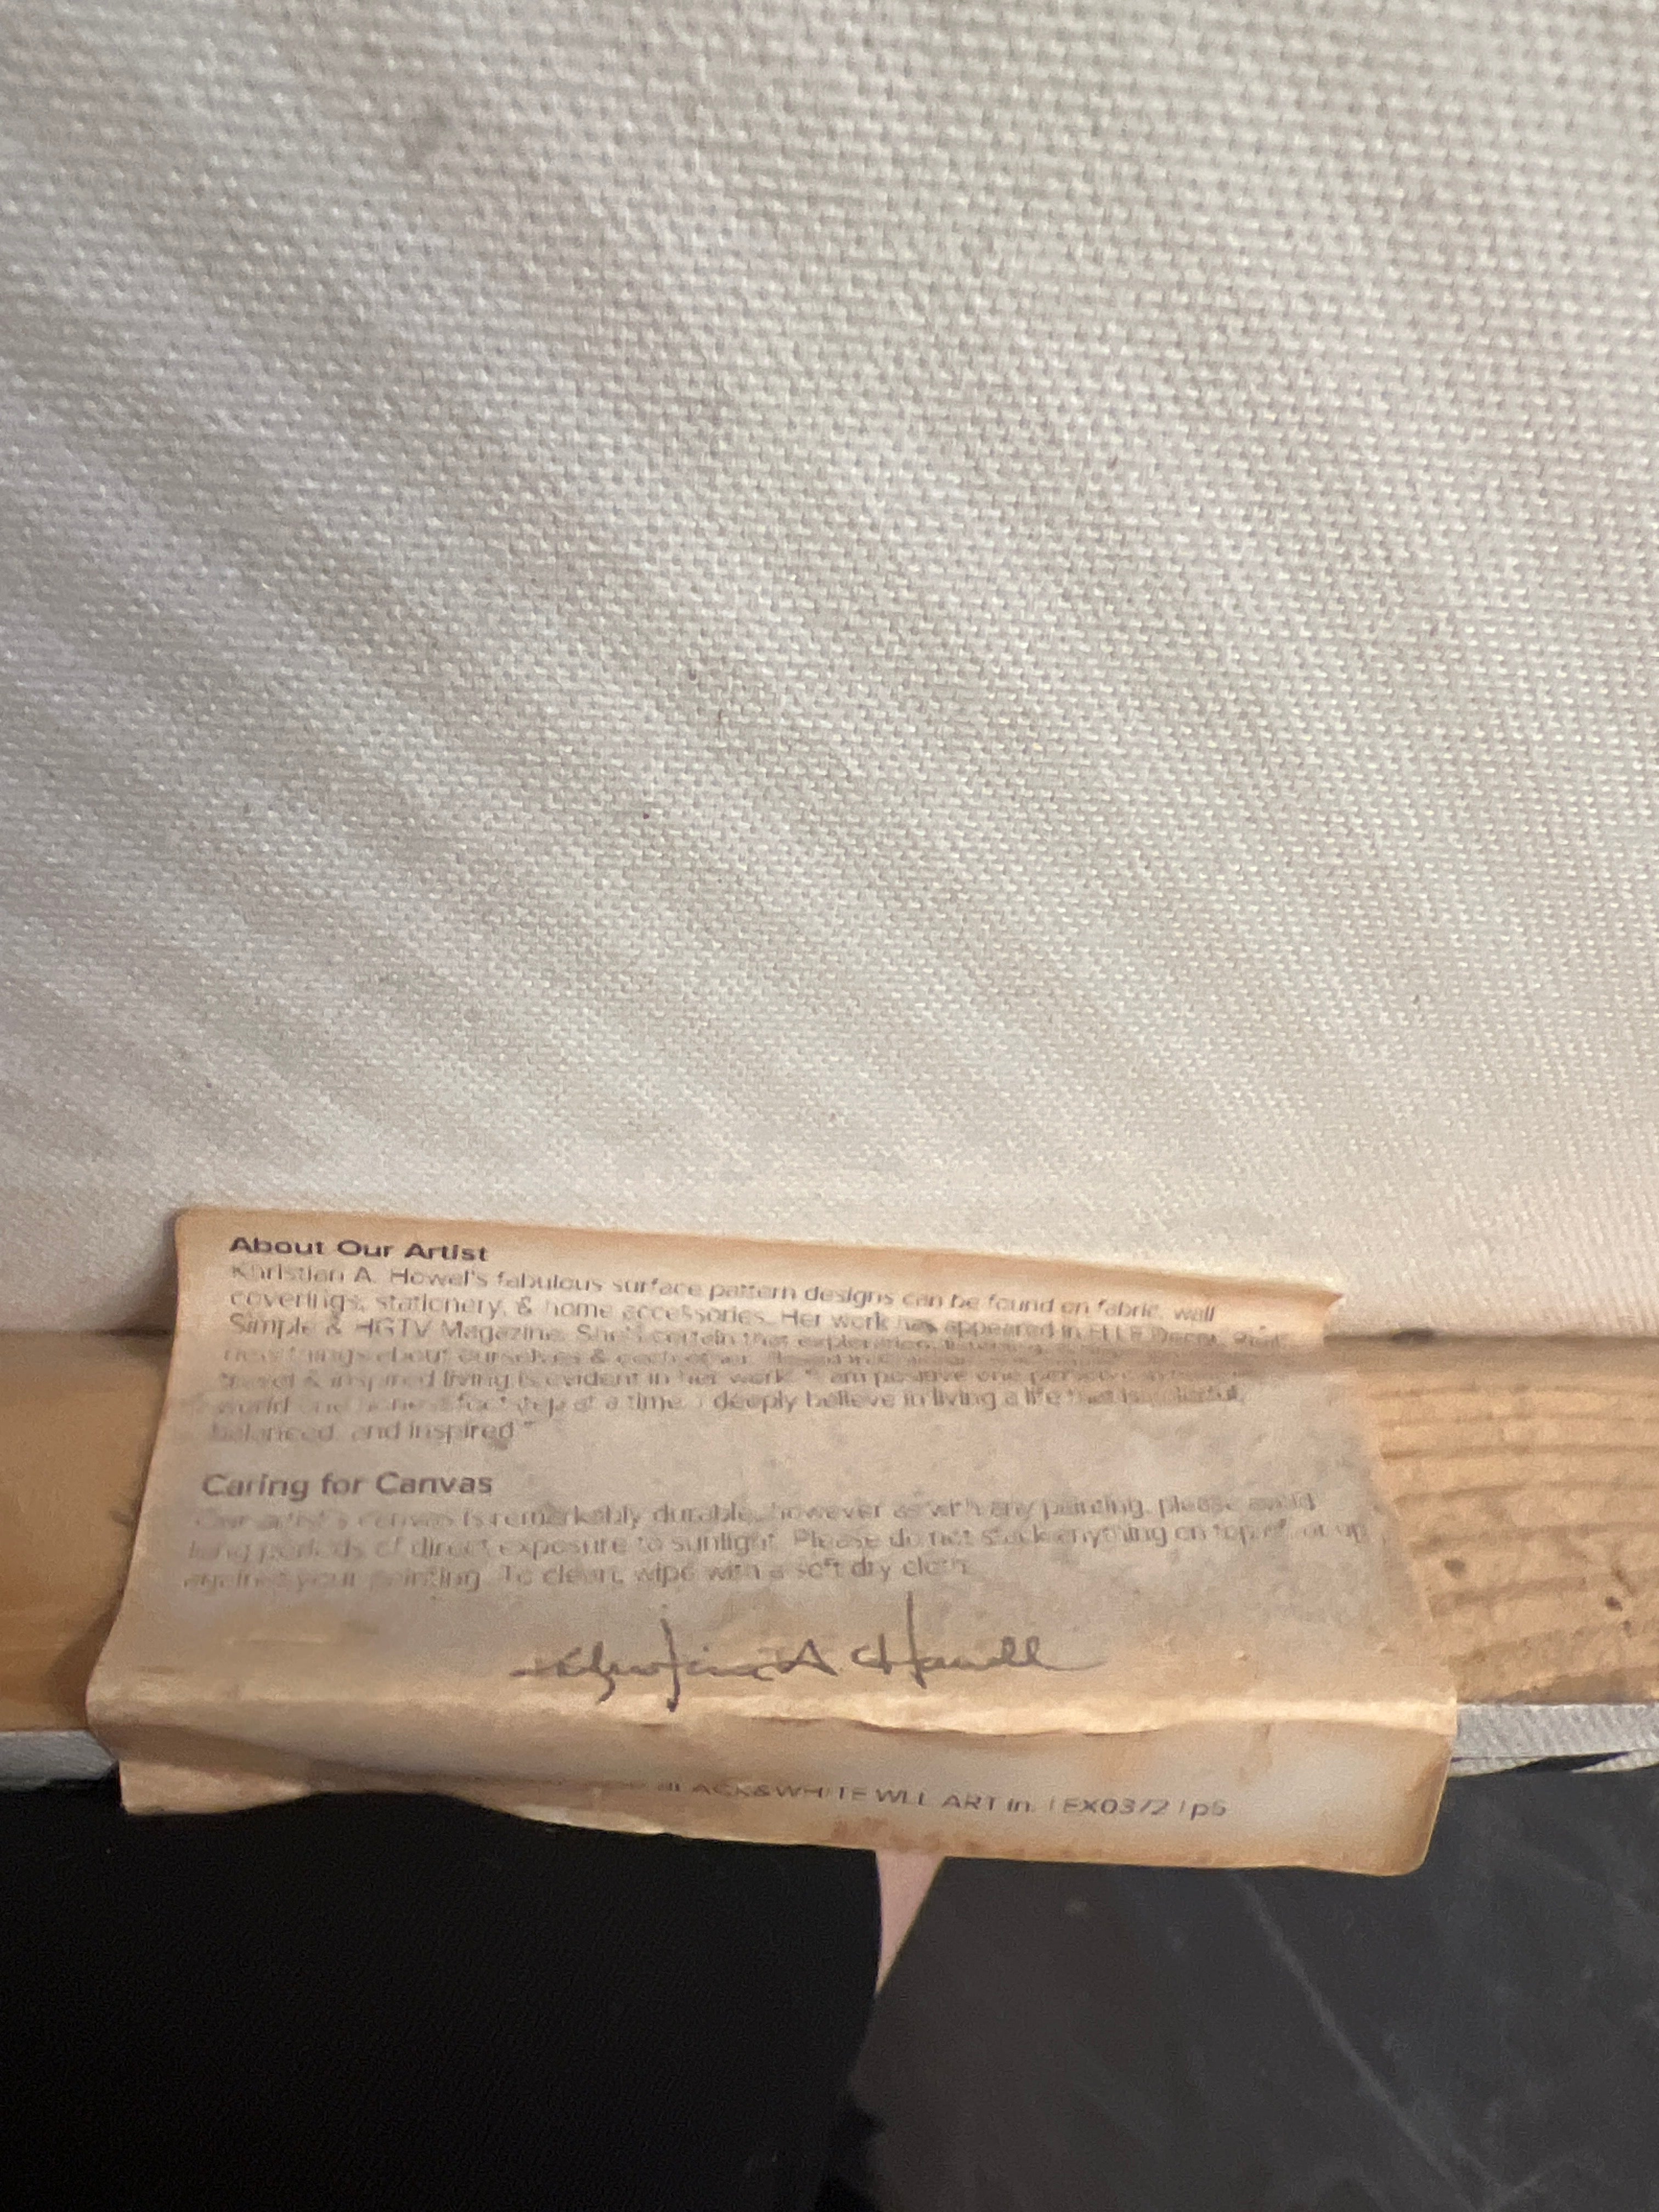 About Our Artist
Khristian A. Howell's fabulous surface pattern designs can be found on fabric, wall
coverings, stationery, & home accessories. Her work has appeared in ELLE Decor,
Simple & HGTV Magazine. She's certain that
new things about ourselves & each other.
travel & inspired living is evident in her work. "I am positive one person
world one footstep at a time. I deeply believe in living a life that is
balanced, and inspired."
Caring for Canvas
Our artist's canvas is remarkably durable, however as with any painting, please avoid
long periods of direct exposure to sunlight. Please do not stack anything on top of, or up
against your painting. To clean, wipe with a soft dry cloth.
Khristian A Howell
BLACK&WHITE WLL ART in. | EX0372 | p5